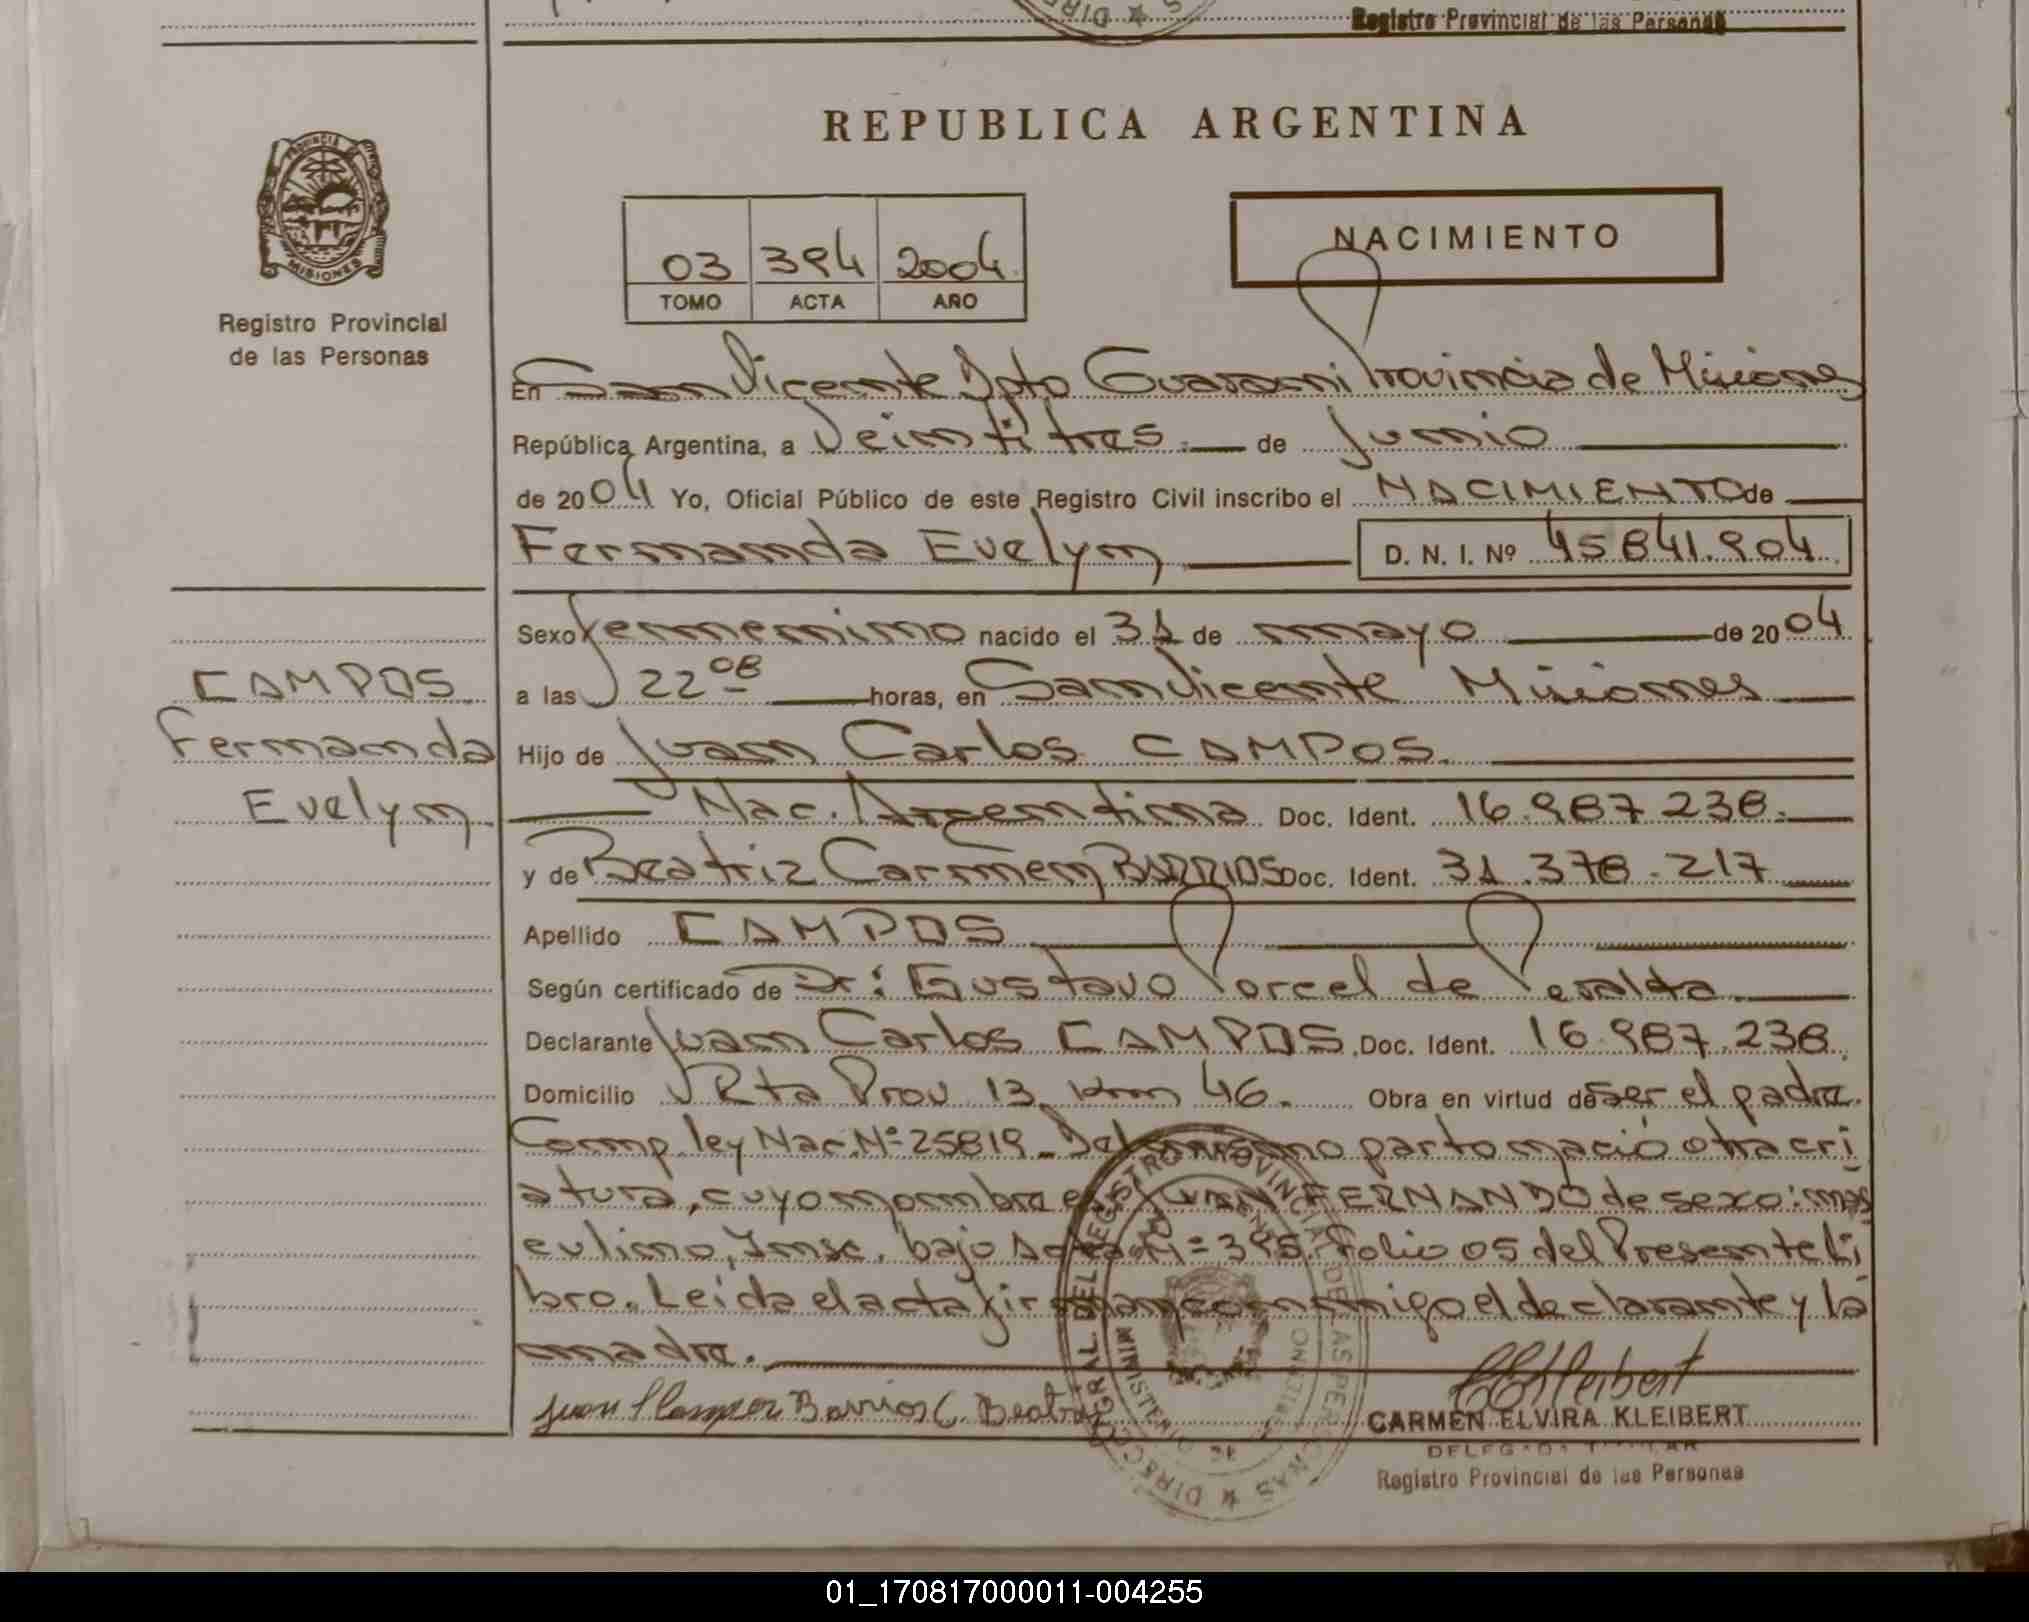 Registro Provincial de las Personas
REPUBLICA ARGENTINA
PROVINCIA DE
MISIONES
Registro Provincial
de las Personas
03 394 2004
TOMO ACTA AÑO
NACIMIENTO
En San Vicente Dpto Guarani Provincia de Misiones
República Argentina, a Veintitres.- de Junio
de 2004 Yo, Oficial Público de este Registro Civil inscribo el NACIMIENTO de
Fernanda Evelyn D. N. I. Nº 45841.904
Sexo femenino nacido el 31 de mayo de 2004
a las 22 08 horas, en San Vicente Misiones
CAMPOS
Fernanda
Evelyn.
Hijo de Juan Carlos CAMPOS.
Nac. Argentina Doc. Ident. 16.987 238.
y de Beatriz Carmen BARRIOS Doc. Ident. 31.378.217
Apellido CAMPOS
Según certificado de Dr: Gustavo Porcel de Peralta.
Declarante Juan Carlos CAMPOS. Doc. Ident. 16.987.238.
Domicilio Rta Prov 13 Km 46. Obra en virtud de ser el padre.
Comp. ley Nac. Nº 25819_ Del mismo parto nació otra cri
atura, cuyo nombre es JUAN FERNANDO de sexo: mas
culino, Insc. bajo Acta Nº 395. Folio 05 del Presente Li
bro. Leida el acta firman conmigo el declarante y la
madre.
Barrios C. Beatriz
CARMEN ELVIRA KLEIBERT
DELEGADA TITULAR
Registro Provincial de las Personas
01_170817000011-004255